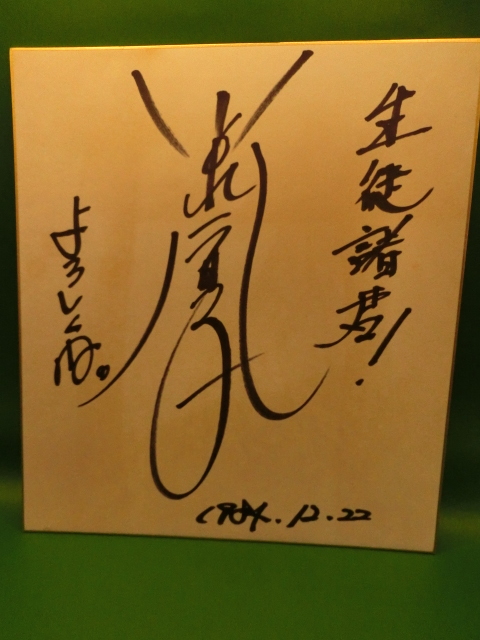 生徒諸君!
よろしくね。
1984.12.22